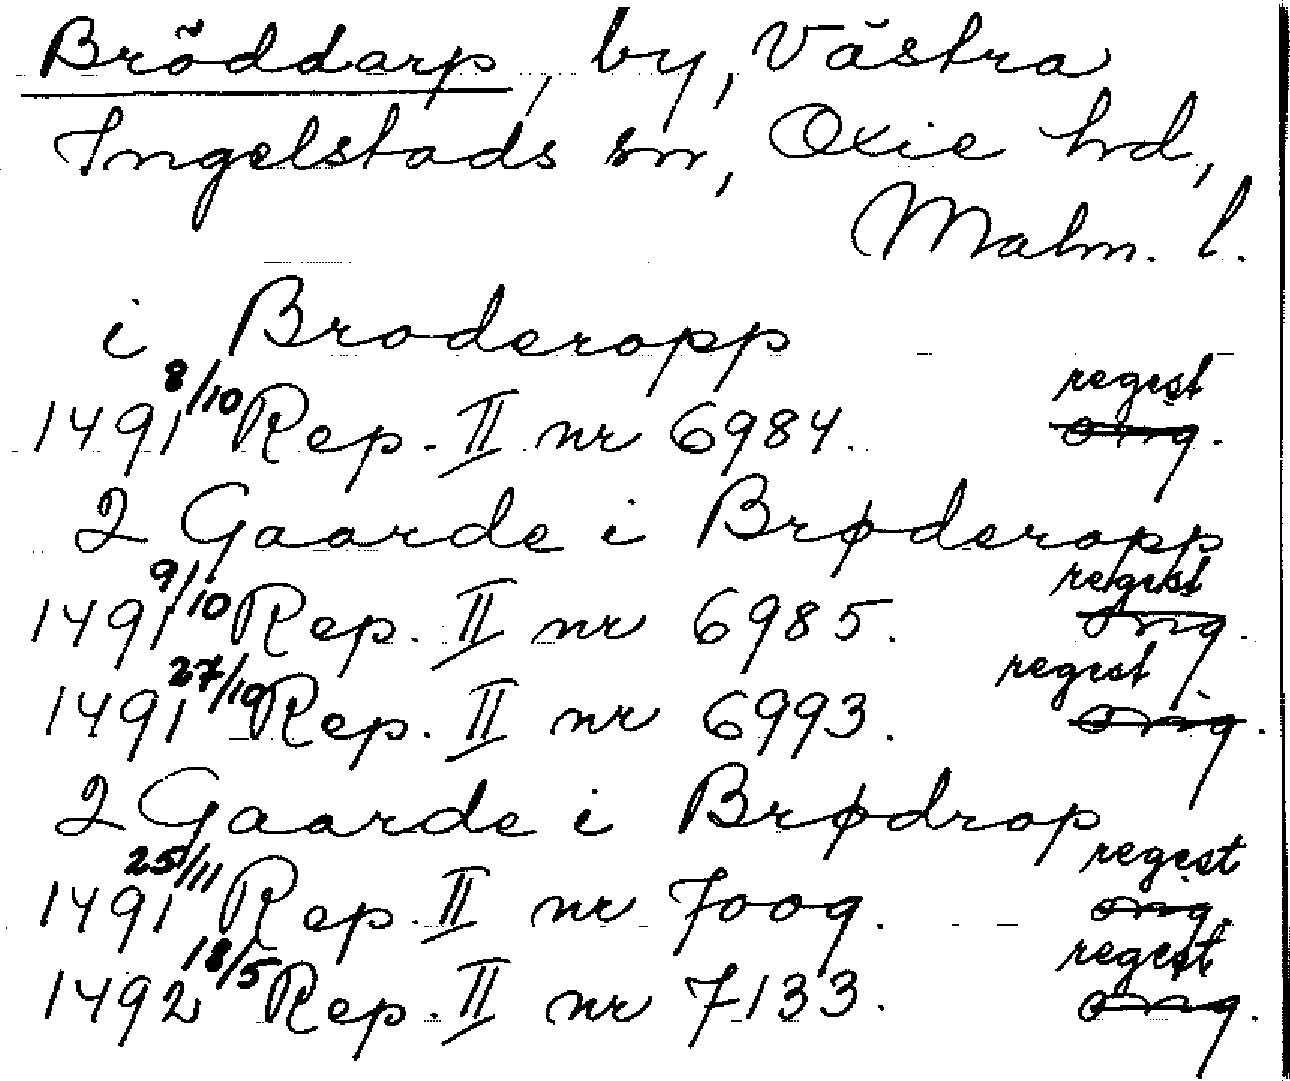 Bröddarp, by, Västra
Ingelstads sn, Oxie hd,
Malm. l.
i Broderopp
1491 8/10 Rep. II nr 6984. regest orig.
2 Gaarde i Brøderopp
1491 9/10 Rep. II nr 6985. regest orig.
1491 27/10 Rep. II nr 6993. regest orig.
2 Gaarde i Brødrop
1491 25/11 Rep. II nr 7009. regest orig.
1492 18/5 Rep. II nr 7133. regest orig.